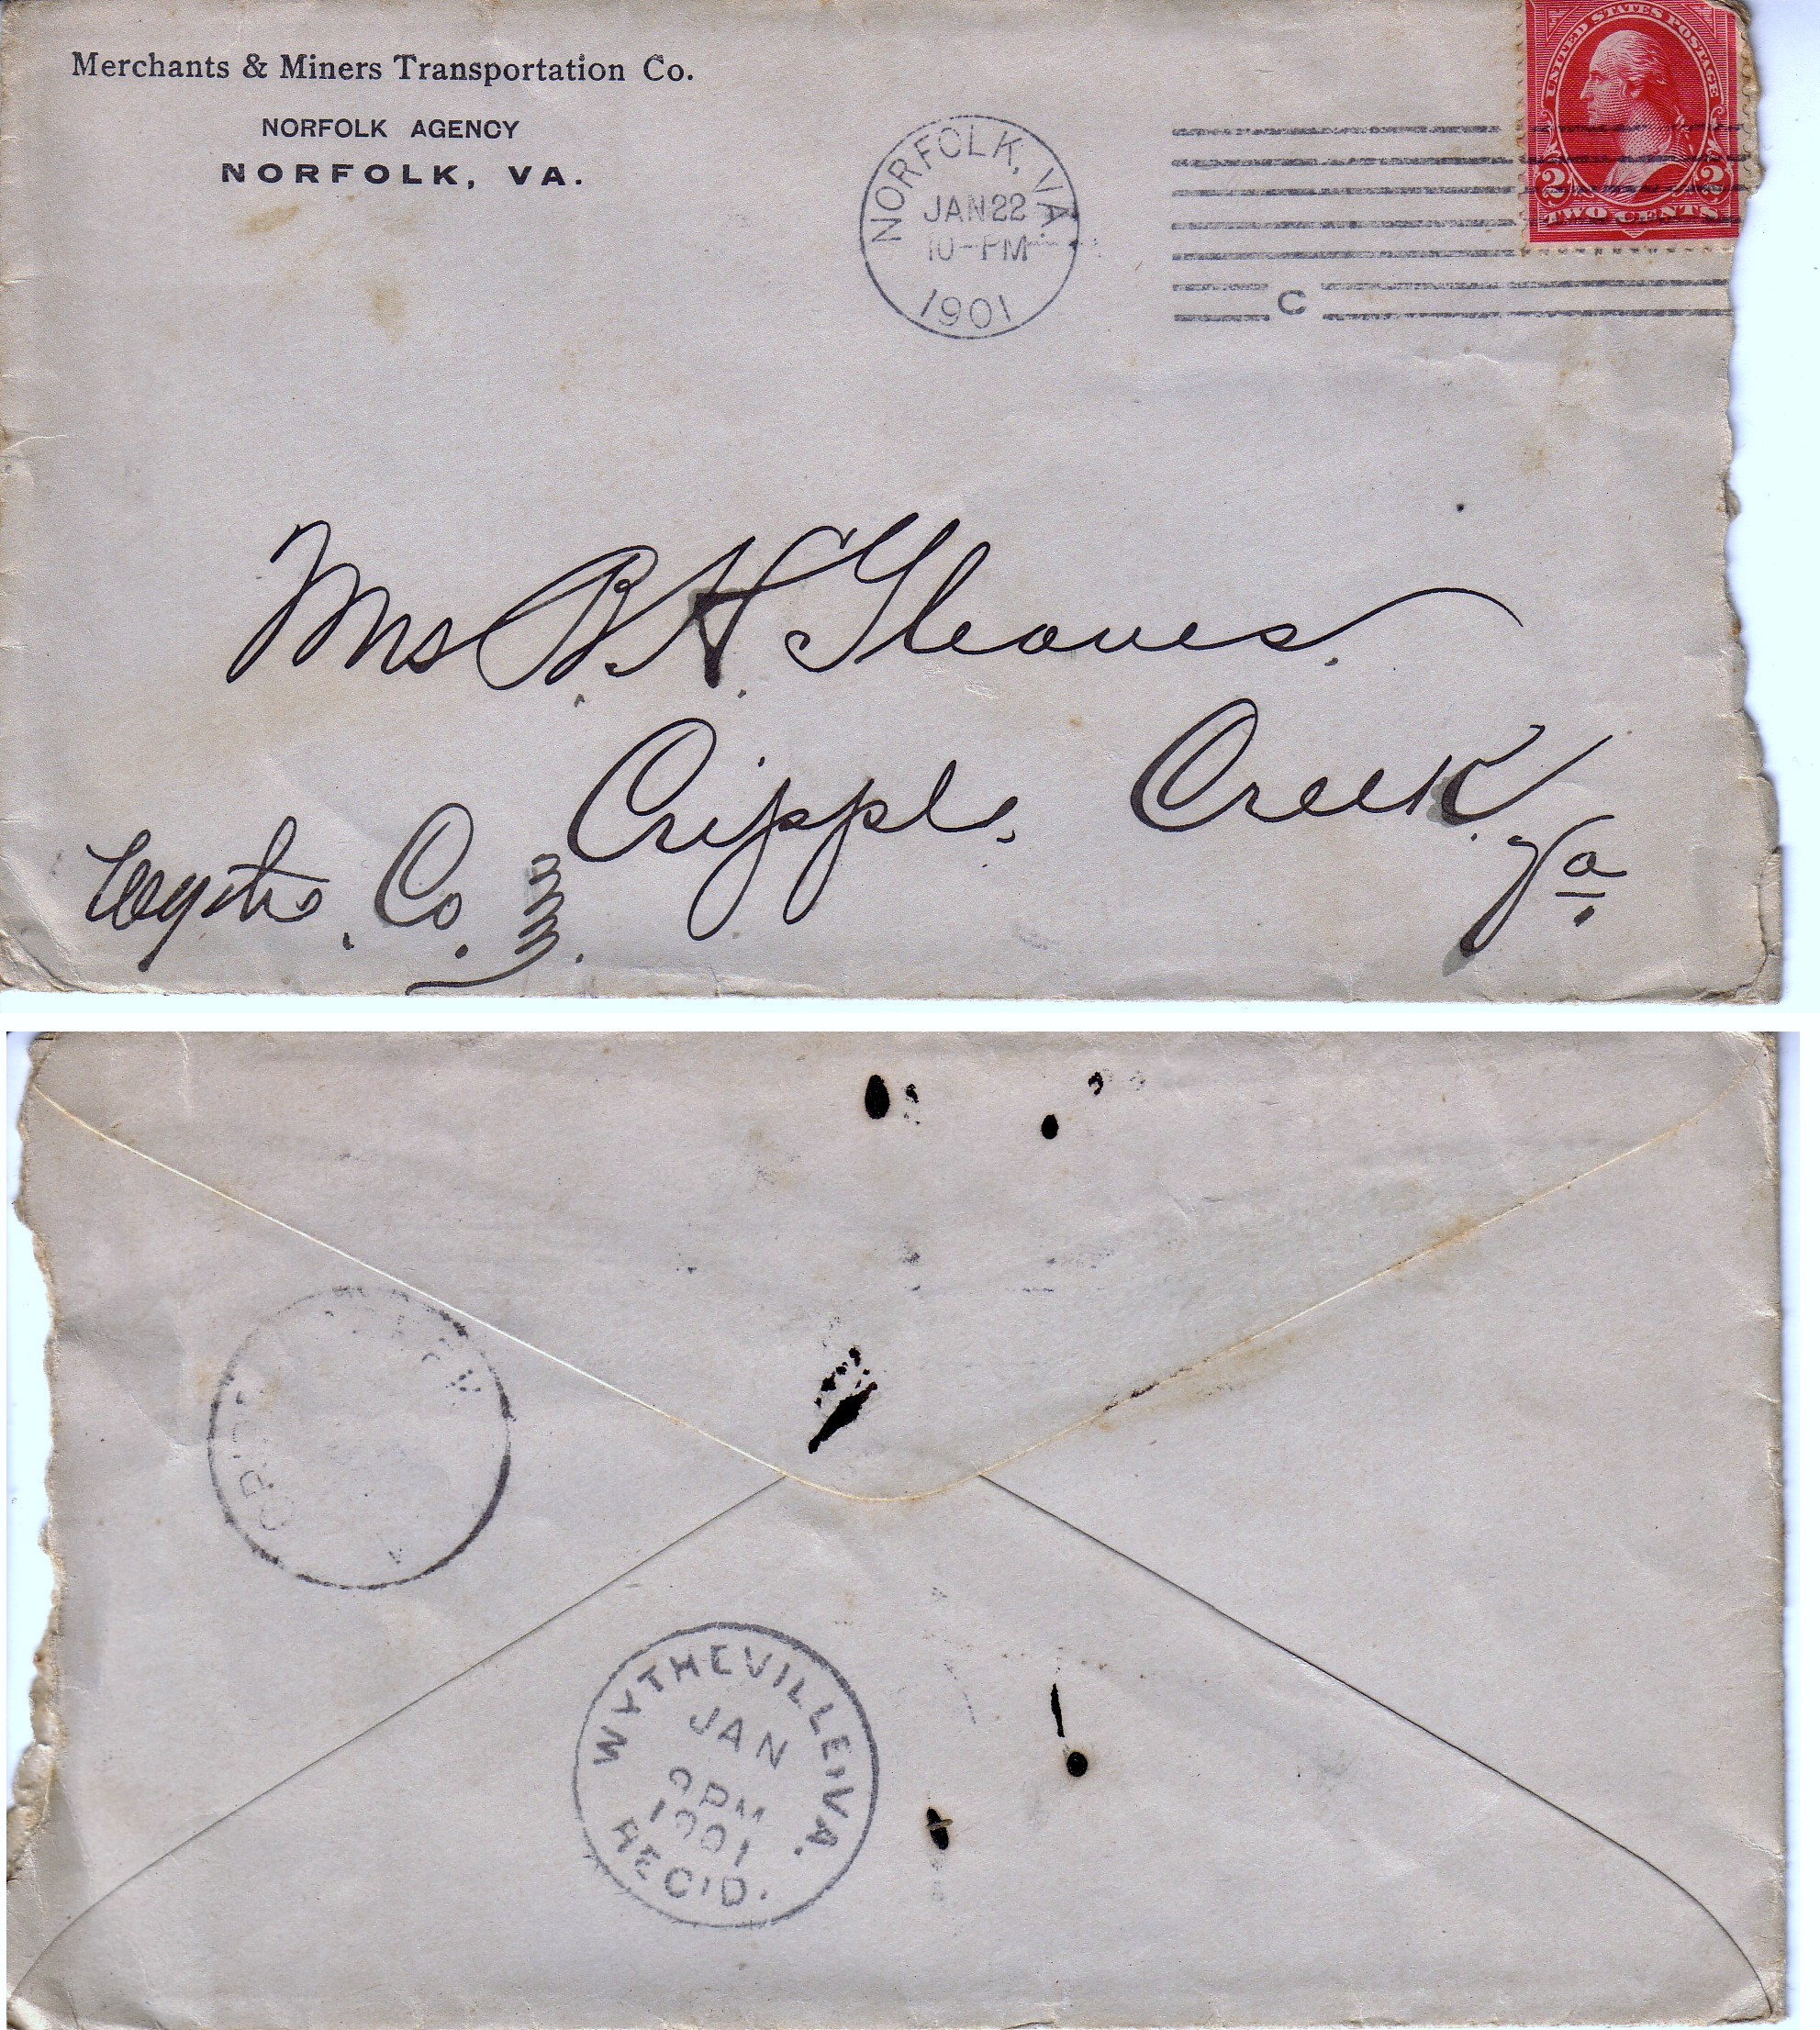 Merchants & Miners Transportation Co.
NORFOLK AGENCY
NORFOLK, VA.
NORFOLK, VA.
JAN 22
10-PM
1901
C
UNITED STATES POSTAGE
2 2
TWO CENTS
Mrs B. H. Gleaves.
Cripple Creek.
Va.
Wythe Co.
WYTHEVILLE, VA.
JAN
PM
1901
REC'D.